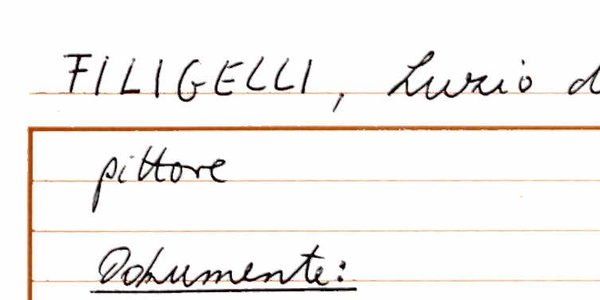 FILIGELLI, Luzio d
pittore
Dokumente: